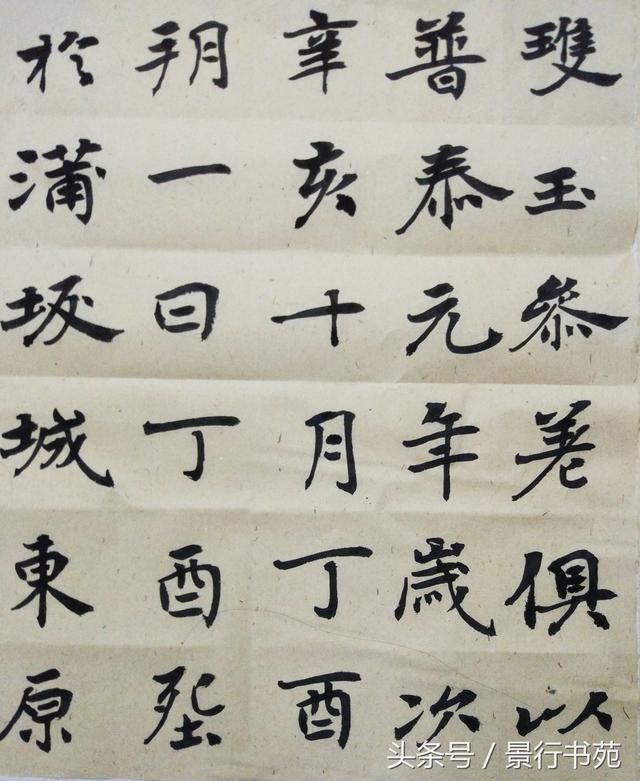 瓊玉叅差俱以
普泰元年歲次
辛亥十月丁酉
朔一日丁酉塟
於蒲坂城東原
头条号 / 景行书苑